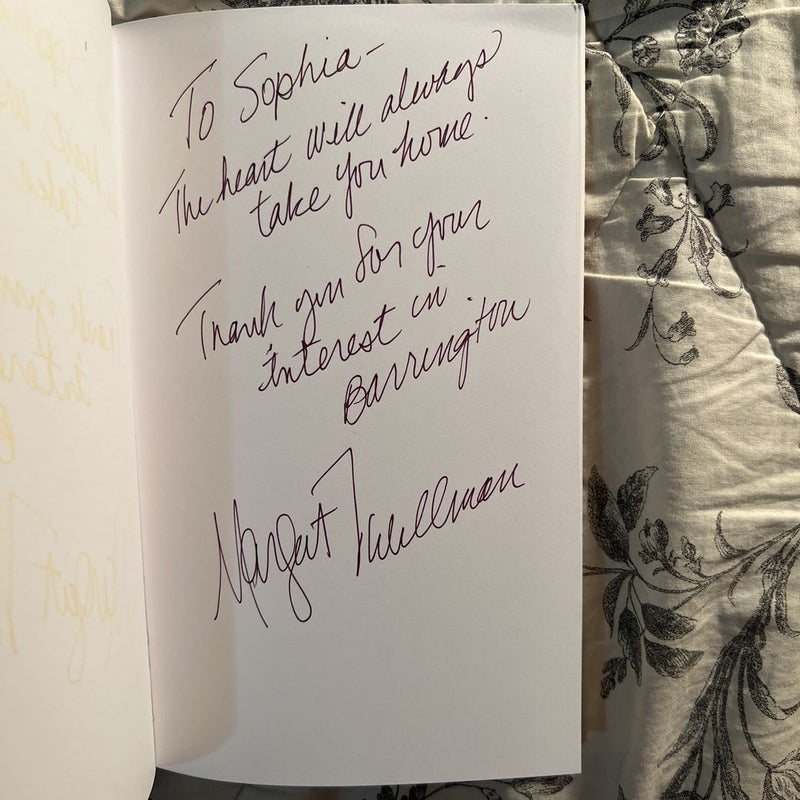 To Sophia-
The heart will always
take you home.
Thank you for your
interest in
Barrington
Margaret